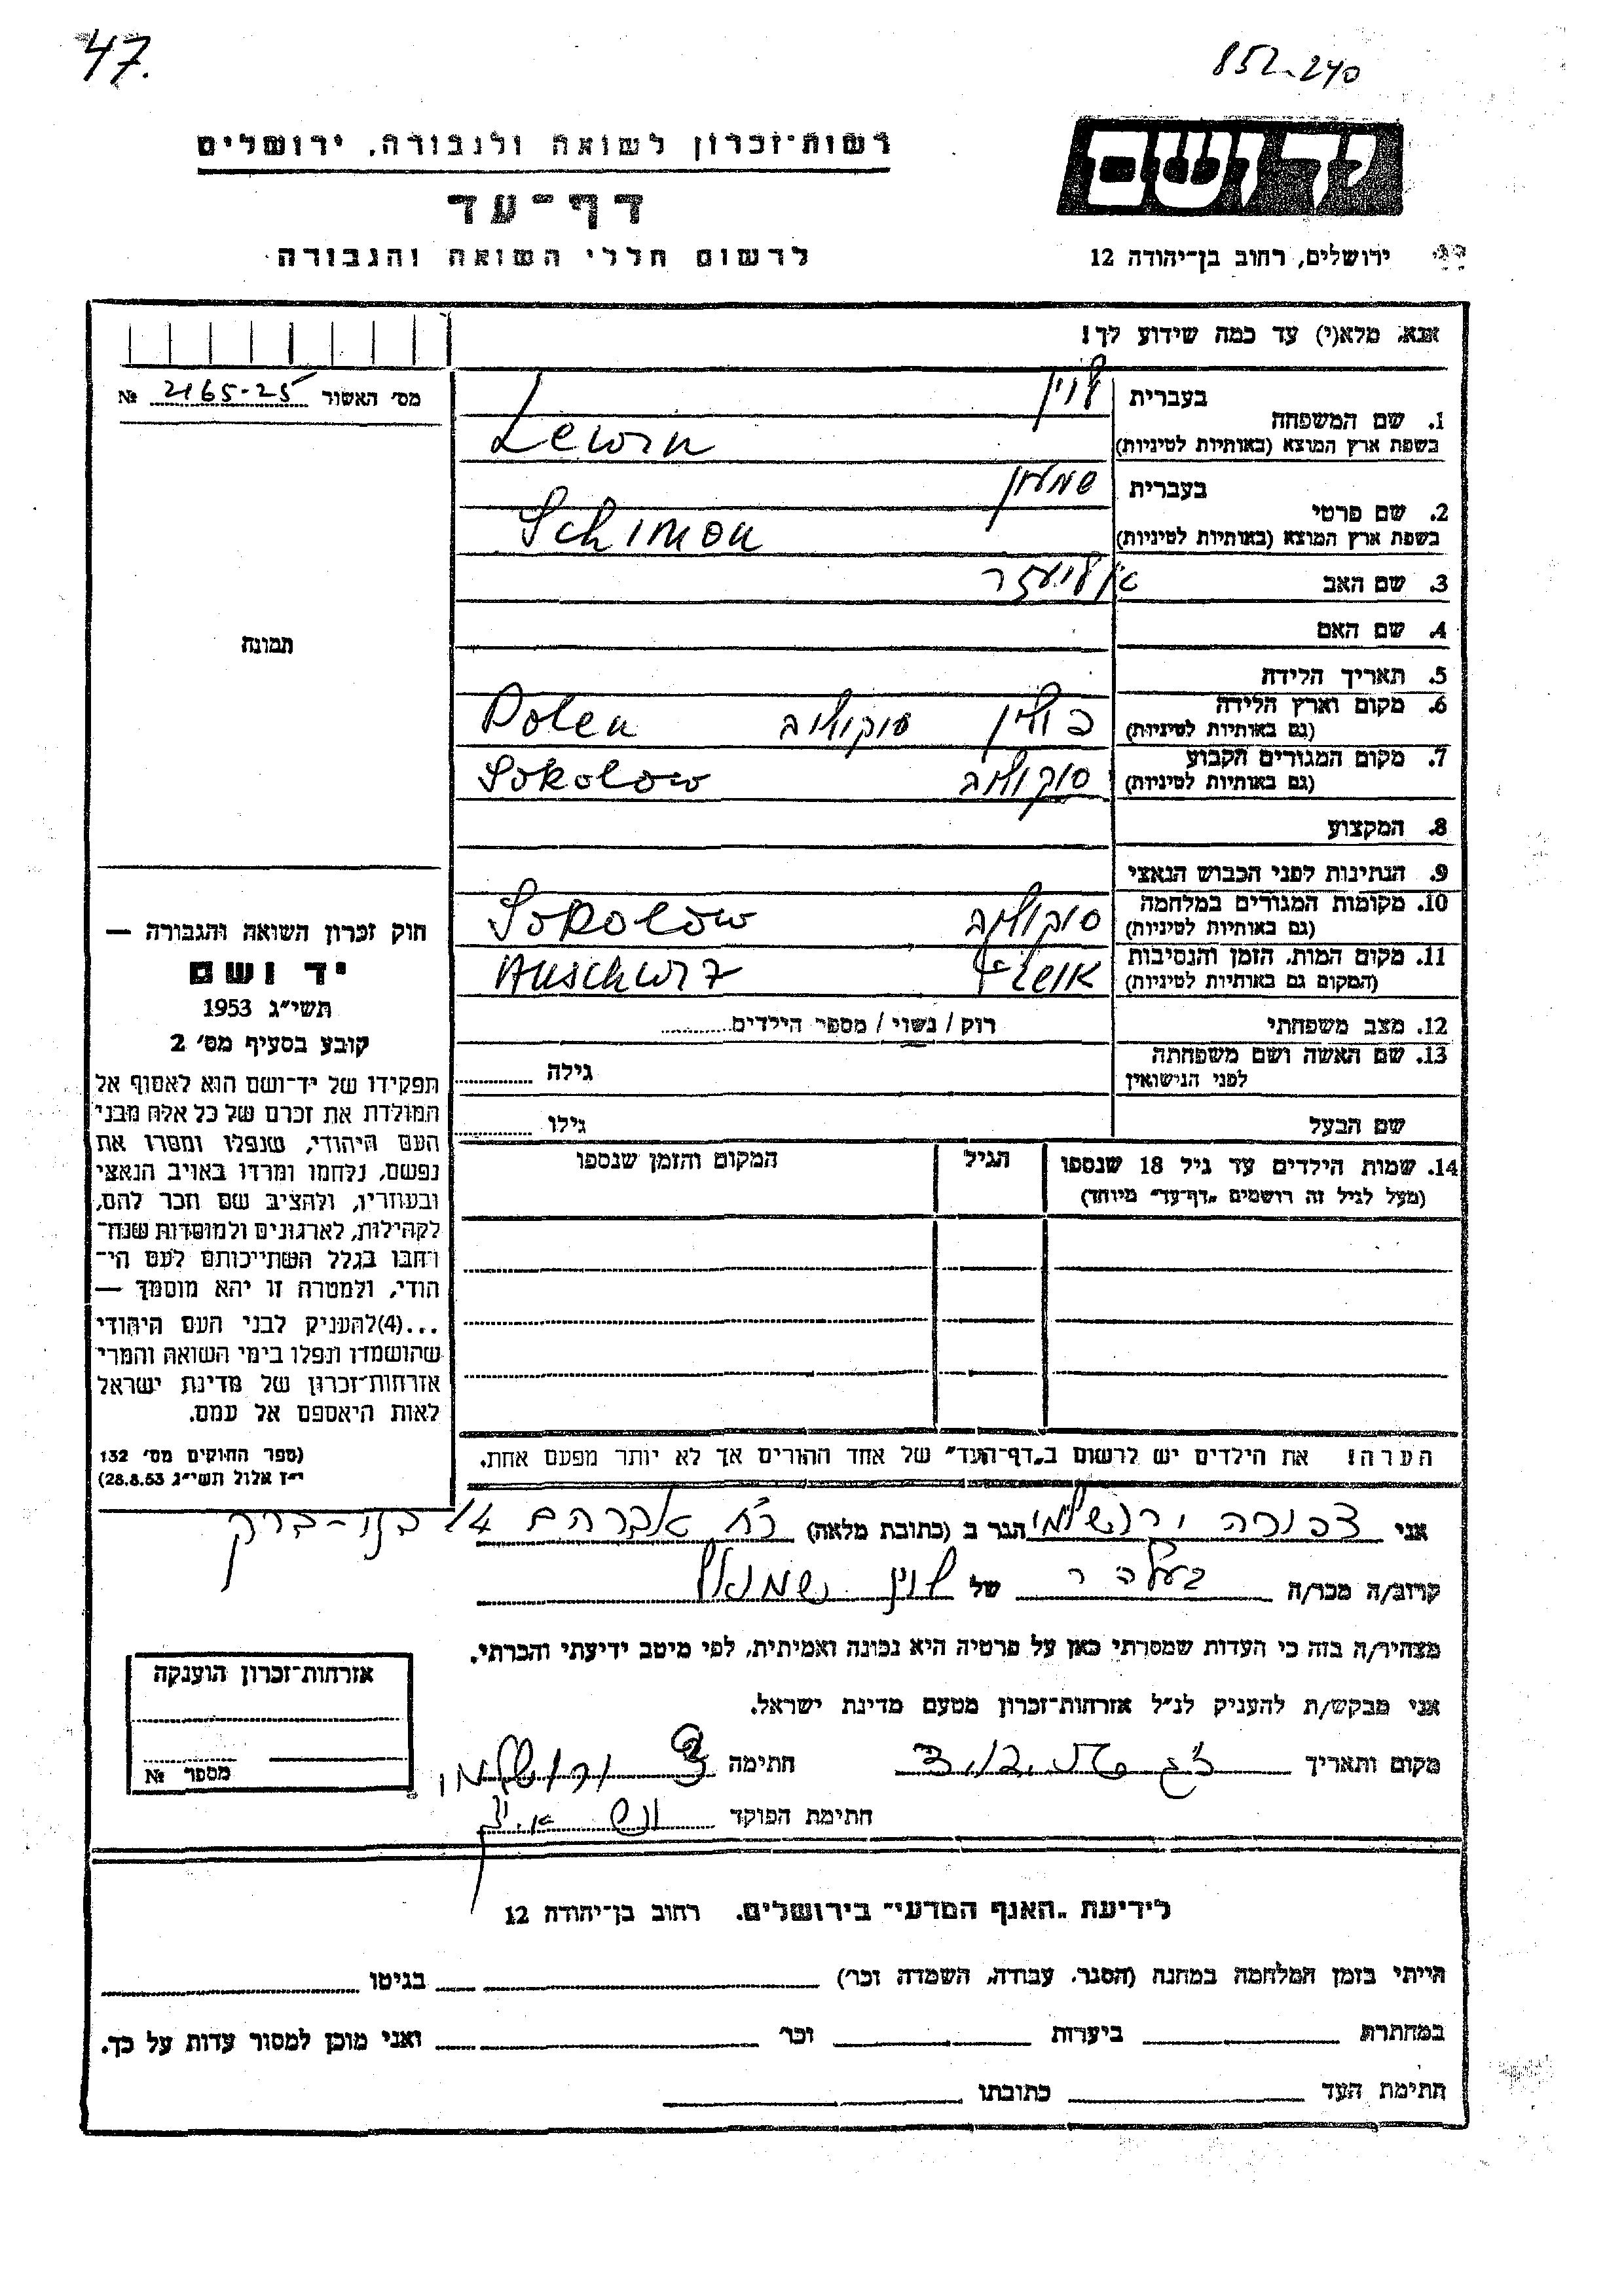 47.
852-240
רשות־זכרון לשואה ולגבורה, ירושלים
יד ושם
דף־עד
לרשום חללי השואה והגבורה
ירושלים, רחוב בן־יהודה 12
אנא, מלא(י) עד כמה שידוע לך!
מס׳ האשור 2165-25 №
1. שם המשפחה
בעברית לוין
בשפת ארץ המוצא (באותיות לטיניות) Lewin
2. שם פרטי
בעברית שמעון
בשפת ארץ המוצא (באותיות לטיניות) Schimon
3. שם האב אליעזר
4. שם האם
תמונה
5. תאריך הלידה
6. מקום וארץ הלידה פולין סוקולוב Polen
(גם באותיות לטיניות)
7. מקום המגורים הקבוע סוקולוב Sokolow
(גם באותיות לטיניות)
8. המקצוע
9. הנתינות לפני הכבוש הנאצי
10. מקומות המגורים במלחמה סוקולוב Sokolow
(גם באותיות לטיניות)
11. מקום המות, הזמן והנסיבות Auschwiz
(המקום גם באותיות לטיניות)
12. מצב משפחתי רוק / נשוי / מספר הילדים
13. שם האשה ושם משפחתה גילה
לפני הנישואין
שם הבעל גילו
14. שמות הילדים עד גיל 18 שנספו הגיל המקום והזמן שנספו
(מעל לגיל זה רושמים „דף־עד״ מיוחד)
חוק זכרון השואה והגבורה —
יד ושם
תשי״ג 1953
קובע בסעיף מס׳ 2
תפקידו של יד־ושם הוא לאסוף אל
המולדת את זכרם של כל אלה מבני
העם היהודי, שנפלו ומסרו את
נפשם, נלחמו ומרדו באויב הנאצי
ובעוזריו, ולהציב שם וזכר להם,
לקהילות, לארגונים ולמוסדות שנח־
רבו בגלל השתייכותם לעם הי־
הודי, ולמטרה זו יהא מוסמך —
...(4)להעניק לבני העם היהודי
שהושמדו ונפלו בימי השואה והמרי
אזרחות־זכרון של מדינת ישראל
לאות היאספם אל עמם.
(ספר החוקים מס׳ 132
י״ז אלול תשי״ג 28.8.53)
הערה! את הילדים יש לרשום ב„דף־העד״ של אחד ההורים אך לא יותר מפעם אחת.
אני צפורה ירושלמי הגר ב (כתובת מלאה) רח אברהם 14 בני-ברק
קרוב/ה מכר/ה של לוין
מצהיר/ה בזה כי העדות שמסרתי כאן על פרטיה היא נכונה ואמיתית, לפי מיטב ידיעתי והכרתי.
אני מבקש/ת להעניק לנ״ל אזרחות־זכרון מטעם מדינת ישראל.
מקום ותאריך חתימה צ ירושלמי
חתימת הפוקד
אזרחות־זכרון הוענקה
מספר №
לידיעת „האגף המדעי״ בירושלים. רחוב בן־יהודה 12
הייתי בזמן המלחמה במחנה (הסגר, עבודה, השמדה וכו׳) בגיטו
במחתרת ביערות וכו׳ ואני מוכן למסור עדות על כך.
חתימת העד כתובתו